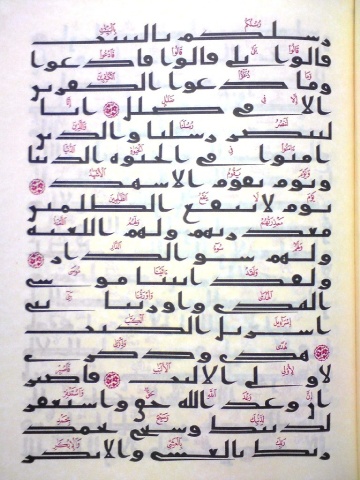 رسلكم بالبينت
قالوا بلى قالوا فادعوا
وما دعوا الكفرين
الا في ضلل انا
لننصر رسلنا والذين
امنوا في الحيوه الدنيا
ويوم يقوم الاشهد
يوم لا ينفع الظلمين
معذرتهم ولهم اللعنه
ولهم سو الدار
ولقد اتينا موسى
الهدى واورثنا بني
اسريل الكتب
هدى وذكرى
لاولي الالبب فاصبر
ان وعد الله حق واستغفر
لذنبك وسبح بحمد
ربك بالعشي والابكر